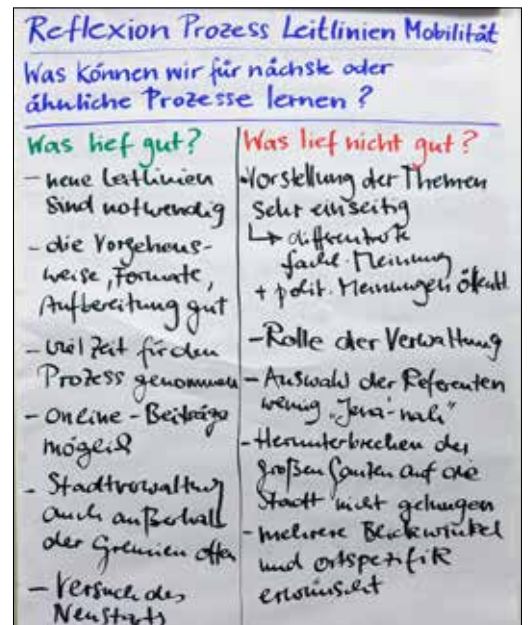 Reflexion Prozess Leitlinien Mobilität
Was können wir für nächste oder
ähnliche Prozesse lernen ?
Was lief gut?
- neue Leitlinien
sind notwendig
- die Vorgehens-
weise, Formate,
Aufbereitung gut
- viel Zeit für den
Prozess genommen
- Online-Beiträge
möglich
- Stadtverwaltung
auch außerhalb
der Gremien offen
- Versuch des
Neustarts
Was lief nicht gut ?
- Vorstellung der Themen
sehr einseitig
↳ differenzierte
fachl. Meinung
+ polit. Meinungen öffentl.
- Rolle der Verwaltung
- Auswahl der Referenten
wenig „Jena-nah"
- Herunterbrechen des
großen Ganzen auf die
Stadt nicht gelungen
- mehrere Blickwinkel
und ortspezifik
erwünscht